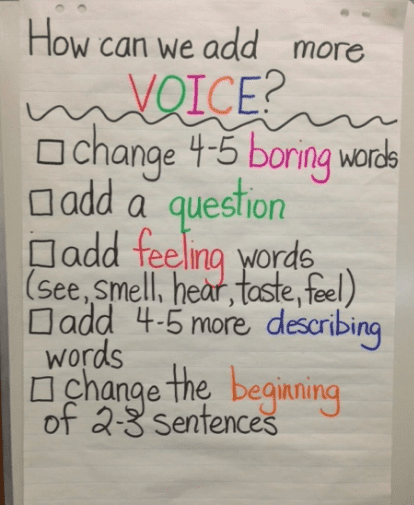 How can we add more
VOICE?
change 4-5 boring words
add a question
add feeling words
(see, smell, hear, taste, feel)
add 4-5 more describing
words
change the beginning
of 2-3 sentences